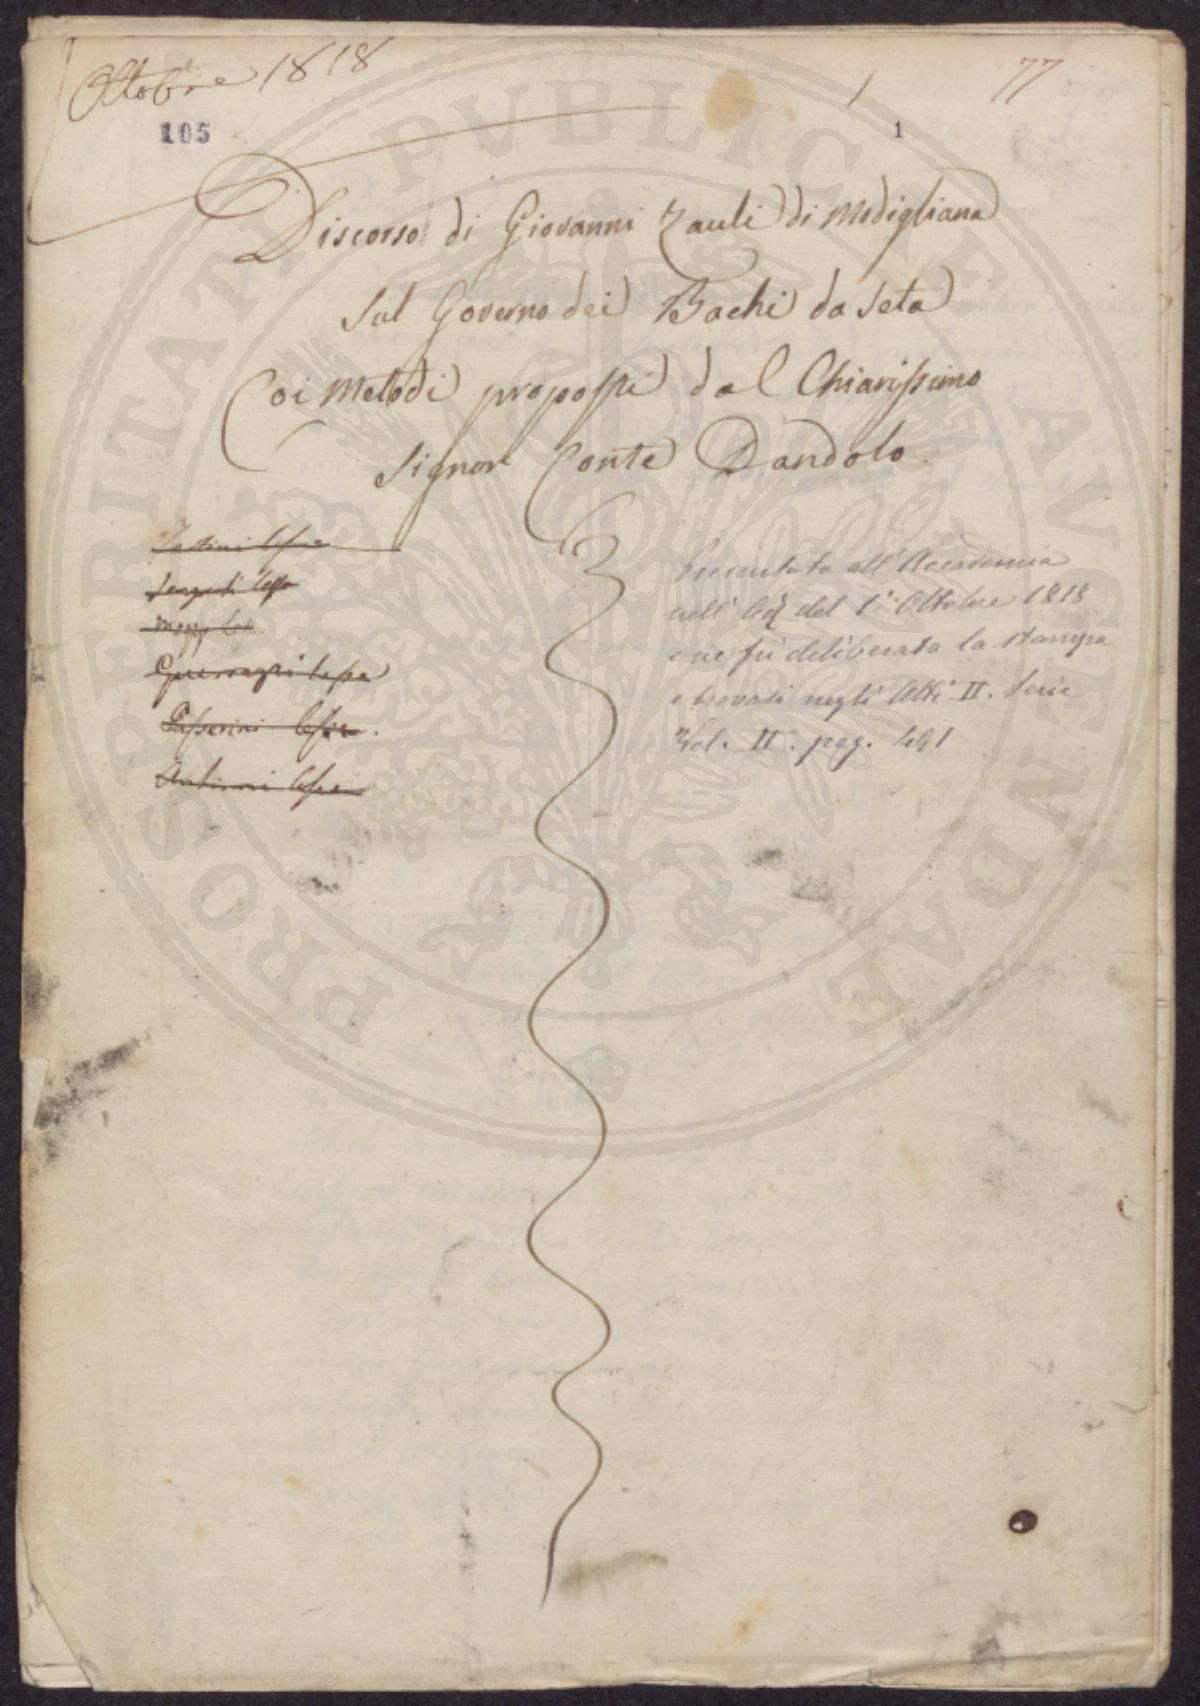 Ottobre 1818
1
77
105
1
Discorso di Giovanni Zauli di Modigliana
sul Governo dei Bachi da Seta
Coi Metodi proposti dal Chiarissimo
Signor Conte Dandolo.
Passerini
Presentato all'Accademia
nell' del 1° Ottobre 1818
e ne fù deliberata la stampa
e trovasi negli Atti II. Serie
Vol. II. pag. 491
PROSPERITATI PVBLICAE AVGENDAE